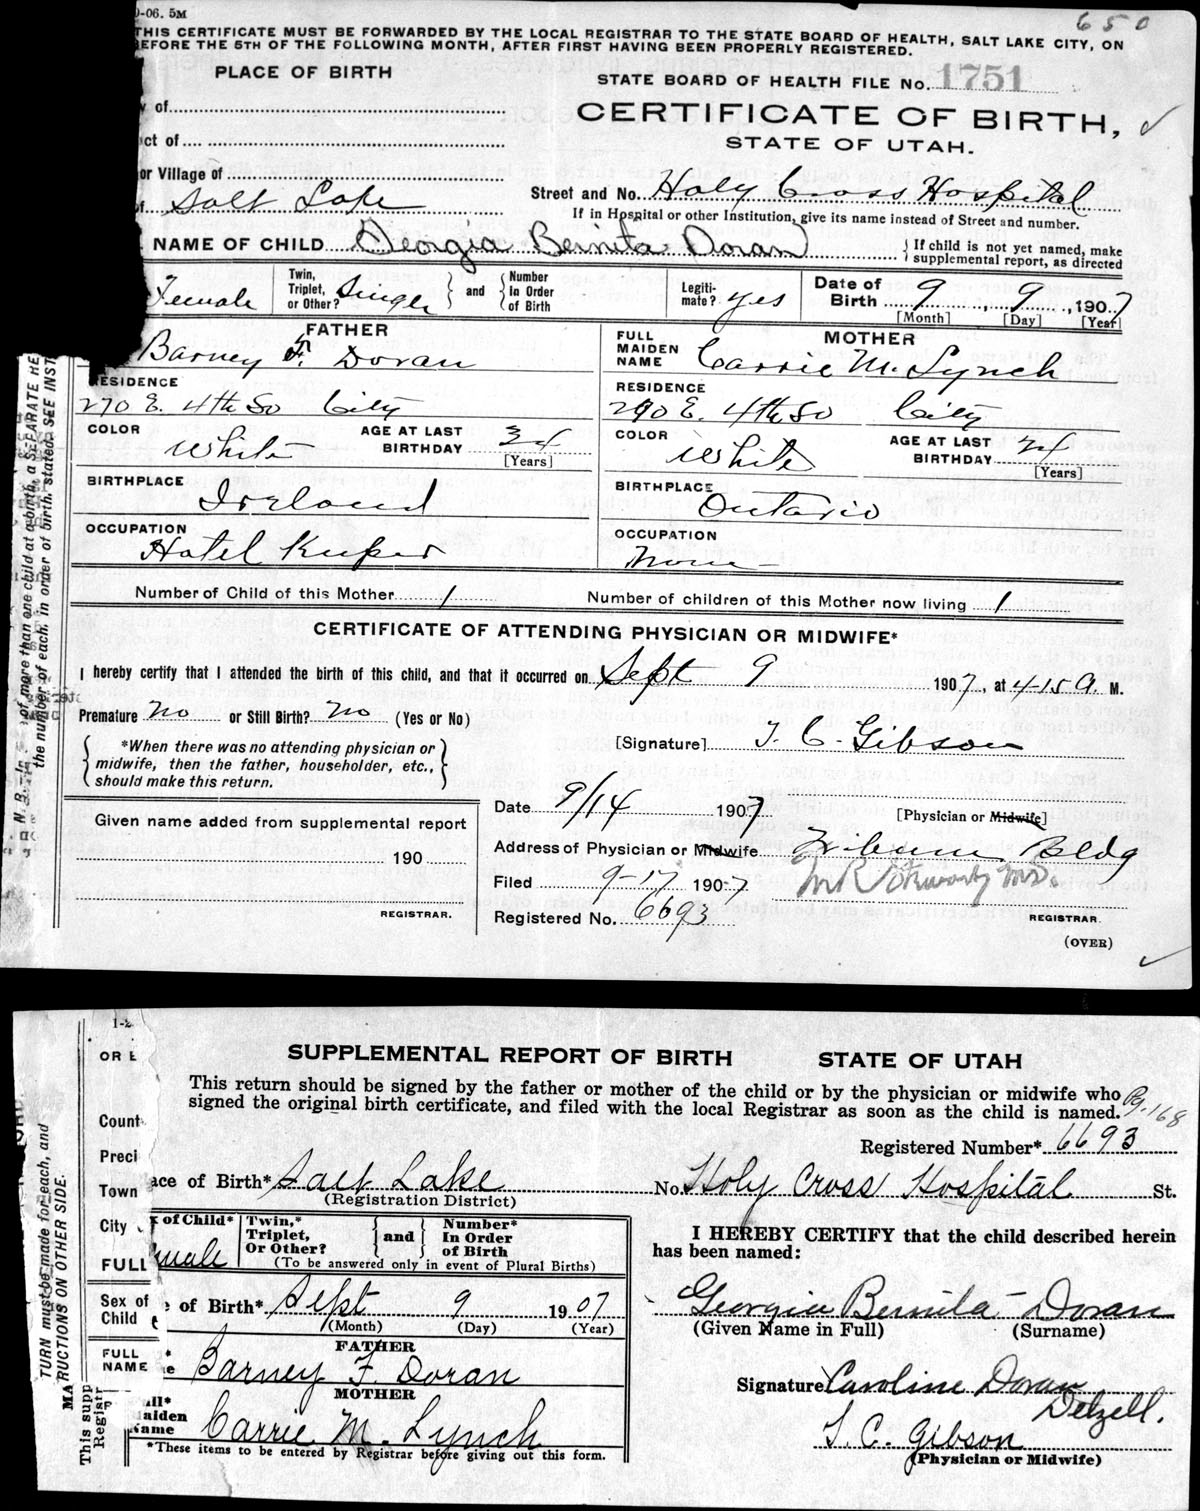 -06. 5M
650
THIS CERTIFICATE MUST BE FORWARDED BY THE LOCAL REGISTRAR TO THE STATE BOARD OF HEALTH, SALT LAKE CITY, ON
EFORE THE 5TH OF THE FOLLOWING MONTH, AFTER FIRST HAVING BEEN PROPERLY REGISTERED.
PLACE OF BIRTH
STATE BOARD OF HEALTH FILE No. 1751
of
CERTIFICATE OF BIRTH,
ct of
STATE OF UTAH.
or Village of
Salt Lake
Street and No. Holy Cross Hospital
If in Hospital or other Institution, give its name instead of Street and number.
NAME OF CHILD Georgia Bernita Doran
If child is not yet named, make
supplemental report, as directed
Female
Twin, Triplet, or Other? Single
and
Number In Order of Birth
Legiti-mate? yes
Date of Birth 9, 9, 1907
[Month] [Day] [Year]
FATHER
Barney F. Doran
FULL MAIDEN NAME
MOTHER
Carrie M. Lynch
RESIDENCE
270 E. 4th So City
RESIDENCE
270 E. 4th So City
COLOR White
AGE AT LAST BIRTHDAY 34
[Years]
COLOR White
AGE AT LAST BIRTHDAY 24
[Years]
BIRTHPLACE Ireland
BIRTHPLACE Ontario
OCCUPATION
Hotel Keeper
OCCUPATION
None
Number of Child of this Mother 1
Number of children of this Mother now living 1
CERTIFICATE OF ATTENDING PHYSICIAN OR MIDWIFE*
I hereby certify that I attended the birth of this child, and that it occurred on Sept 9 1907, at 4-15 a. M.
Premature no or Still Birth? no (Yes or No)
*When there was no attending physician or
midwife, then the father, householder, etc.,
should make this return.
[Signature] T. C. Gibson
Given name added from supplemental report
190
REGISTRAR.
Date 9/14 1907
[Physician or Midwife]
Address of Physician or Midwife Tribune Bldg
Filed 9-17 1907
Registered No. 6693
REGISTRAR.
(OVER)
N. B.—In of more than one child at a birth, a SEPARATE RE
the number of each, in order of birth, stated. SEE INST
1-2
OR
SUPPLEMENTAL REPORT OF BIRTH STATE OF UTAH
This return should be signed by the father or mother of the child or by the physician or midwife who
signed the original birth certificate, and filed with the local Registrar as soon as the child is named.
Pg. 168
Count
Registered Number* 6693
Preci
Town
ace of Birth* Salt Lake
(Registration District)
No. Holy Cross Hospital St.
City
x of Child*
male
Twin,* Triplet, Or Other?
and
Number* In Order of Birth
(To be answered only in event of Plural Births)
FULL
I HEREBY CERTIFY that the child described herein
has been named:
Sex of Child
e of Birth* Sept 9 1907
(Month) (Day) (Year)
Georgia Bernita Doran
(Given Name in Full) (Surname)
FULL NAME
FATHER
Barney F. Doran
Signature Caroline Doran
Delzell.
MOTHER
ull* aiden Name Carrie M. Lynch
T. C. Gibson
(Physician or Midwife)
*These items to be entered by Registrar before giving out this form.
TURN must be made for each, and
RUCTIONS ON OTHER SIDE.
MA
This supp
Registr